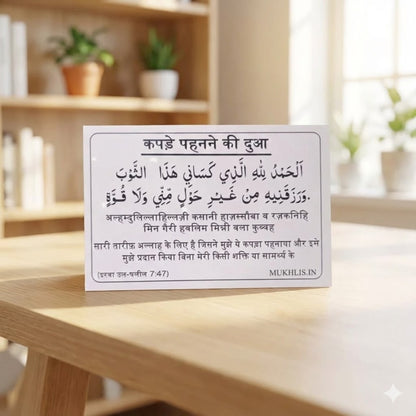 कपड़े पहनने की दुआ
اَلْحَمْدُ لِلّٰهِ الَّذِي كَسَانِي هَذَا الثَّوْبَ
وَرَزَقَنِيهِ مِنْ غَيْرِ حَوْلٍ مِّنِّي وَلَا قُوَّةٍ.
अल्हम्दुलिल्लाहिल्लज़ी कसानी हाज़स्सौबा व रज़कनिहि
मिन गैरी हवलिम मिन्नी वला कुव्वह
सारी तारीफ़ अल्लाह के लिए है जिसने मुझे ये कपड़ा पहनाया और इसे
मुझे प्रदान किया बिना मेरी किसी शक्ति या सामर्थ्य के
(इरवा उल-घलील 7:47)
MUKHLIS.IN